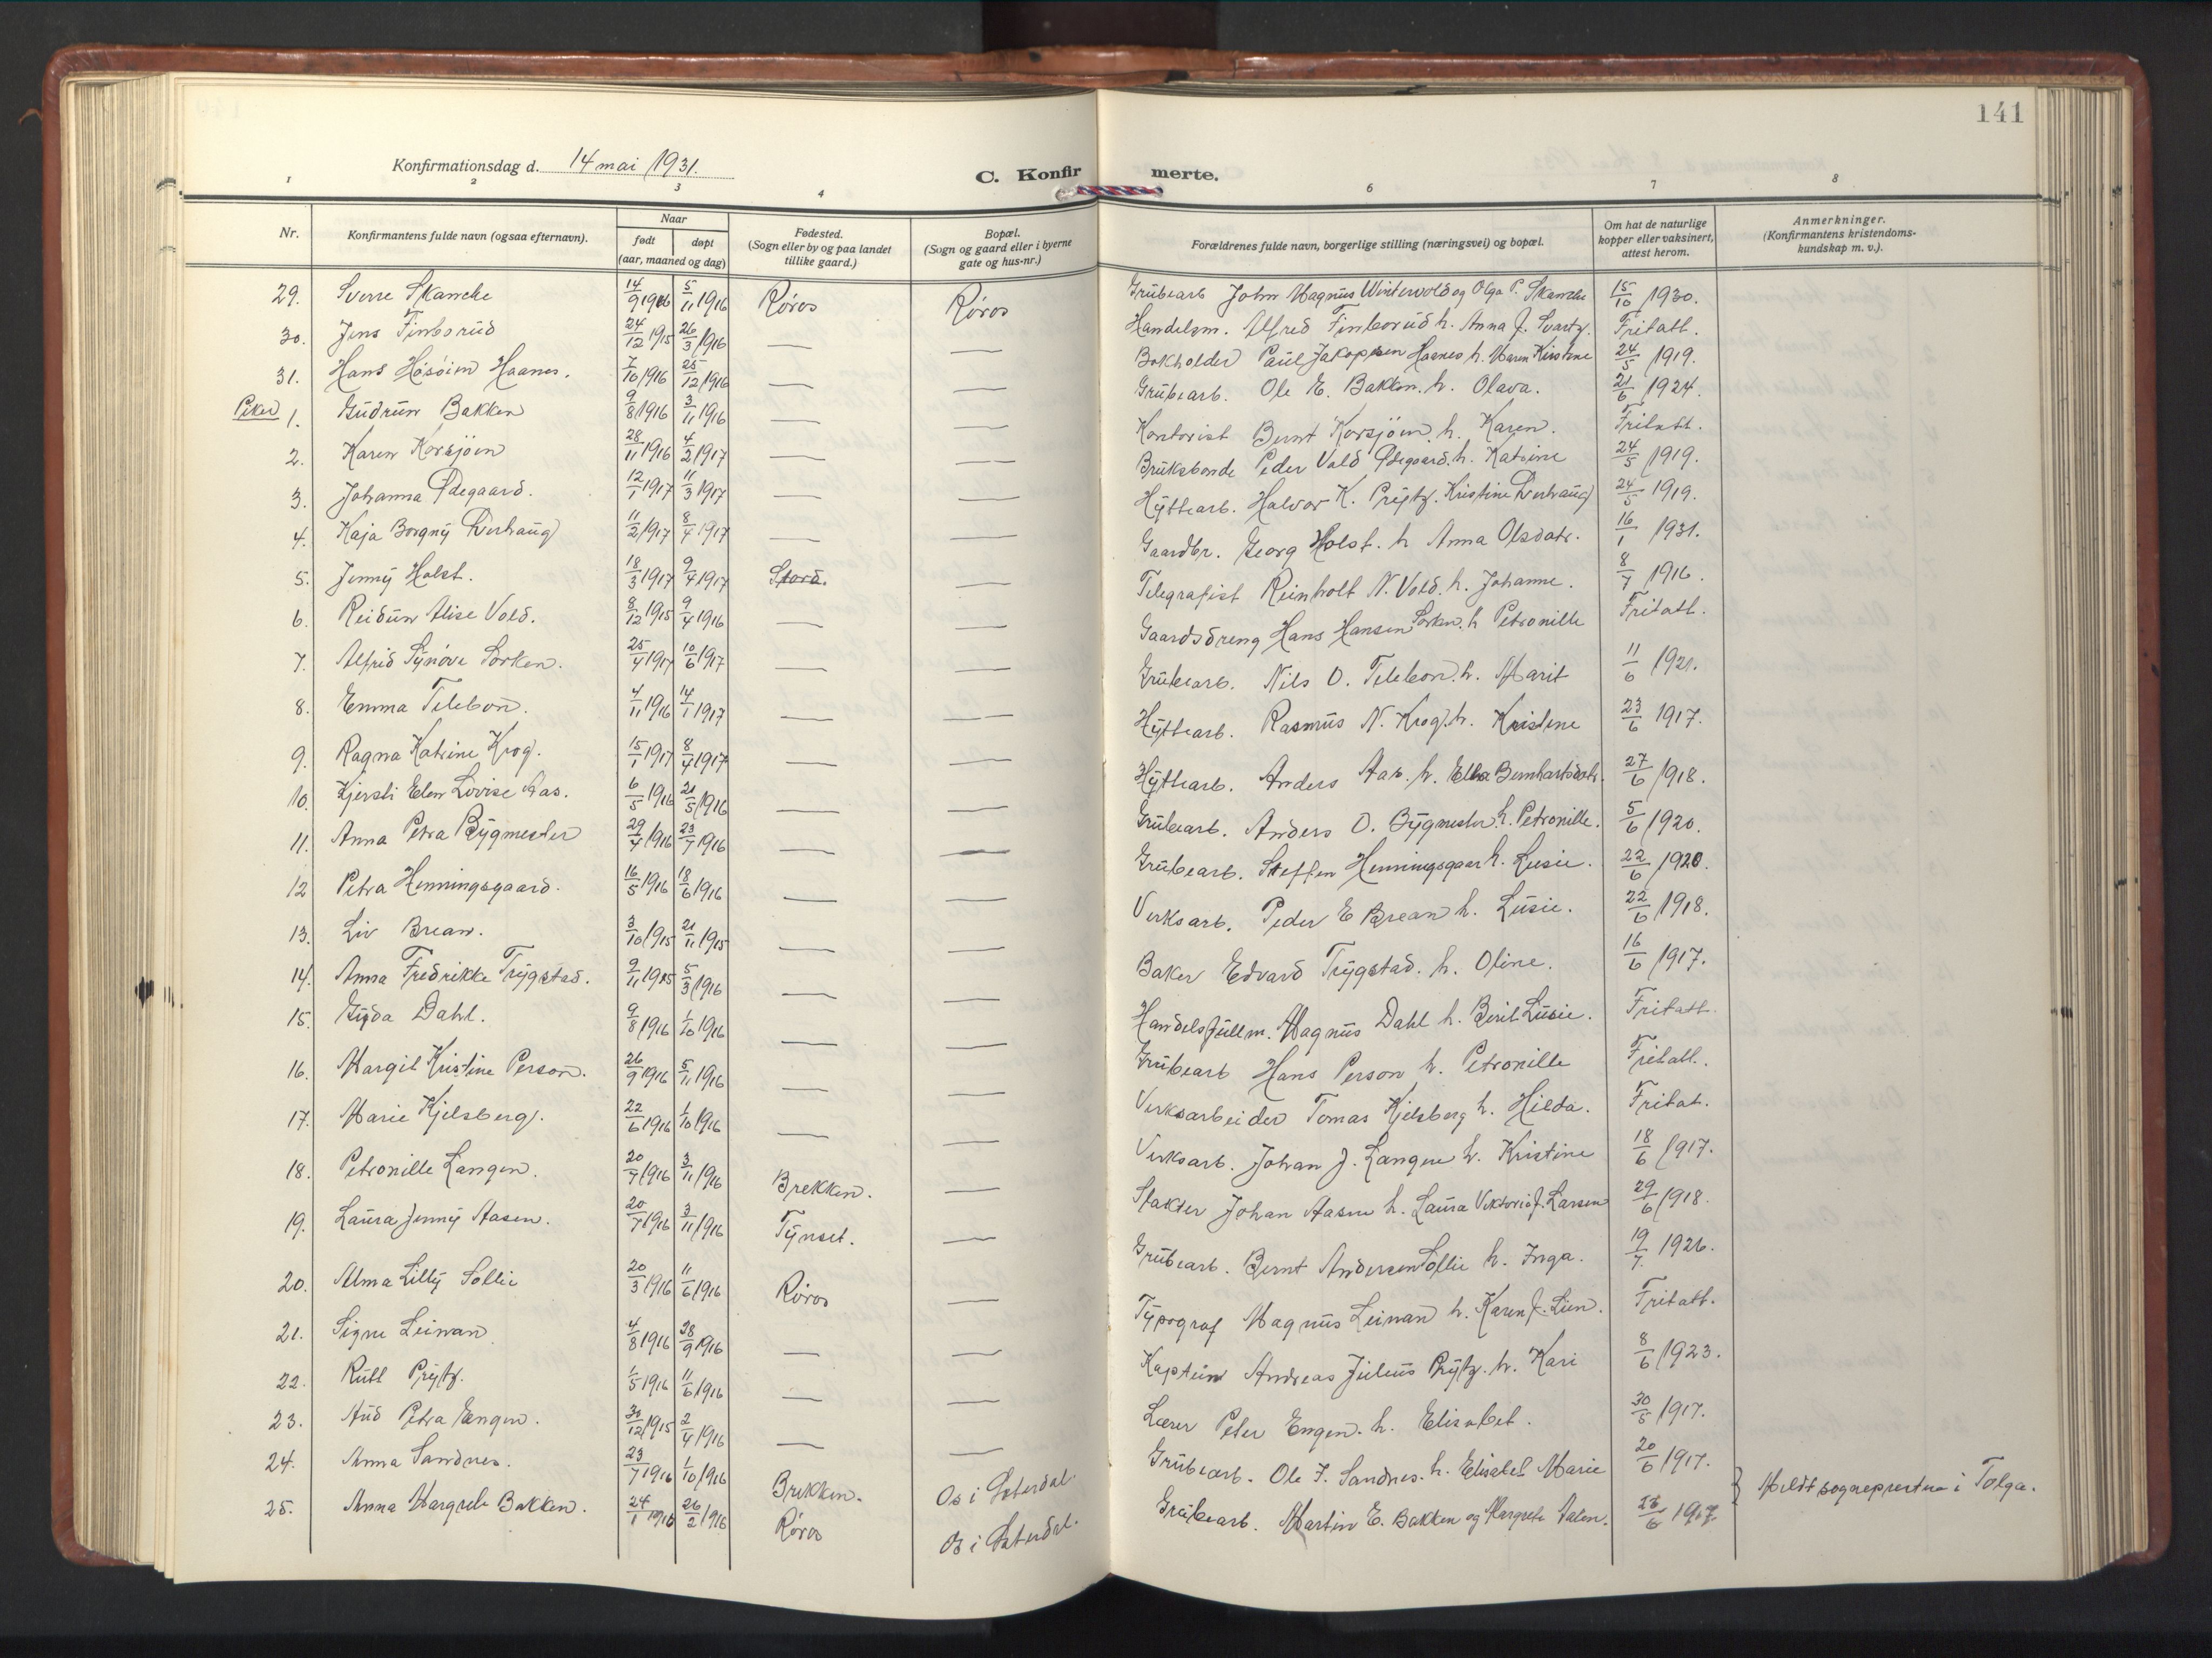 141
Konfirmationsdag d. 14 mai 1931.
C. Konfirmerte.
1 2 3 4 6 7 8
Nr. Konfirmantens fulde navn (ogsaa efternavn). Naar født døpt (aar, maaned og dag) Fødested. (Sogn eller by og paa landet tillike gaard.) Bopæl. (Sogn og gaard eller i byerne gate og hus-nr.) Forældrenes fulde navn, borgerlige stilling (næringsvei) og bopæl. Om hat de naturlige kopper eller vaksinert, attest herom. Anmerkninger. (Konfirmantens kristendomskundskap m. v.).
29. Sverre Skancke 14/9 1916 5/11 1916 Røros Røros Grubearb John Magnus Wintervold og Olga P. Skancke 15/10 1930.
30. Jens Finborud 24/12 1915 26/3 1916 — — Handelsm. Alfred Finborud h. Anna J. Svartz. Fritatt.
31. Hans Høsøien Haanes. 7/10 1916 25/12 1916 — — Bokholder Paul Jakopsen Haanes h. Maren Kirstine 24/5 1919.
Piker 1. Gudrun Bakken 9/8 1916 3/11 1916 — — Grubearb. Ole E. Bakken. h. Olava. 21/6 1924.
2. Karen Korsjøen 28/11 1916 4/2 1917 — — Kontorist Bernt Korsjøen. h. Karen. Fritatt.
3. Johanna Ødegaard. 12/1 1917 11/3 1917 — — Bruksbonde Peder Vold Ødegaard. h. Katrine 24/5 1919.
4. Kaja Borgny Derhaug 11/2 1917 8/4 1917 — — Hyttearb. Halvor K. Prytz. Kristine Derhaug 24/5 1919.
5. Jenny Holst. 18/3 1917 9/4 1917 Stord. — Gaardbr. Georg Holst. h Anna Olsdatr. 16/1 1931.
6. Reidun Alise Vold. 8/12 1915 9/4 1916 — — Telegrafist Reinholt N. Vold. h. Johanne. 8/7 1916.
7. Alfrid Synøve Sorken. 25/4 1917 10/6 1917 — — Gaardsdreng Hans Hansen Sorken. h Petronille Fritatt.
8. Emma Telebon. 4/11 1916 14/1 1917 — — Grubearb. Nils O. Telebon. h. Marit 11/6 1921.
9. Ragna Katrine Krog. 15/1 1917 8/4 1917 — — Hyttearb. Rasmus N. Krog. h. Kristine 23/6 1917.
10. Kjersti Elen Lovise Aas. 6/5 1916 21/5 1916 — — Hyttearb. Anders Aas. h. Ella Bernhartsdatr. 27/6 1918.
11. Anna Petra Bygmester 29/4 1916 23/7 1916 — — Grubearb. Anders O. Bygmester. h. Petronille. 5/6 1920.
12 Petra Henningsgaard. 16/5 1916 18/6 1916 — — Grubearb. Steffen Henningsgaar h. Lusie. 22/6 1920.
13. Liv Brean. 3/10 1915 21/11 1915 — — Verksarb. Peder E Brean h. Lusie. 22/6 1918.
14. Anna Fredrikke Trygstad. 9/11 1915 5/3 1916 — — Baker Edvard Trygstad. h. Oline. 16/6 1917.
15. Gyda Dahl. 9/8 1916 1/10 1916 — — Handelsfullm. Magnus Dahl h. Berit Lusie. Fritatt.
16. Margit Kristine Person. 26/9 1916 5/11 1916 — — Grubearb Hans Person h. Petronille Fritatt.
17. Marie Kjelsberg. 22/6 1916 1/10 1916 — — Verksarbeider Tomas Kjelsberg h. Hilda. Fritat.
18. Petronille Langen. 20/7 1916 3/11 1916 Brekken. — Verksarb. Johan J. Langen h. Kristine 18/6 1917.
19. Laura Jenny Aasen. 20/7 1916 3/11 1916 Tynset. — Slakter Johan Aasen h. Laura Viktoria J. Larsen 29/6 1918.
20. Alma Lilly Sollie 20/3 1916 11/6 1916 Røros — Grubearb. Bernt Andersen Sollie h. Inga. 19/7 1926.
21. Signe Leinan 4/8 1916 28/9 1916 — — Typograf Magnus Leinan h. Karen J. Lien. Fritatt.
22. Rutt Prytz. 1/5 1916 11/6 1916 — — Kaptein Andreas Julius Prytz. h. Kari 8/6 1923.
23. Aud Petra Engen. 30/12 1915 2/4 1916 — — Lærer Peter Engen. h. Elisabet. 30/5 1917.
24. Anna Sandnes. 23/7 1916 1/10 1916 Brekken. Os i Østerdal. Grubearb. Ole J. Sandnes. h. Elisabet Marie 20/6 1917.
25. Anna Margrete Bakken. 24/1 1916 26/2 1916 Røros Os i Østerdal. Grubearb. Martin E. Bakken og Margrete Aalen. 23/6 1917.
} Meldt sogneprestene i Tolga.